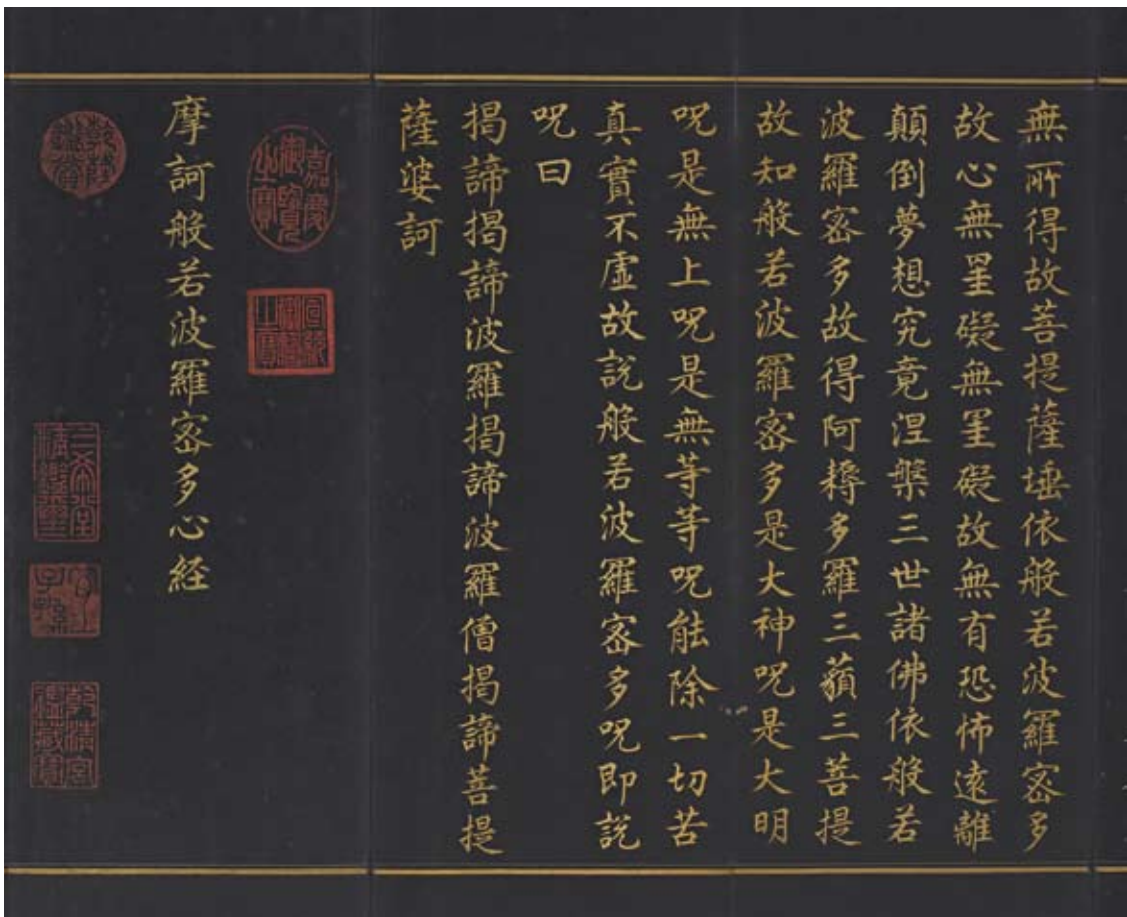 無所得故菩提薩埵依般若波羅密多
故心無罣礙無罣礙故無有恐怖遠離
顛倒夢想究竟涅槃三世諸佛依般若
波羅密多故得阿耨多羅三藐三菩提
故知般若波羅密多是大神呪是大明
呪是無上呪是無等等呪能除一切苦
真實不虛故說般若波羅密多呪即說
呪曰
揭諦揭諦波羅揭諦波羅僧揭諦菩提
薩婆訶
嘉慶御覽之寶
宣統御覽之寶
摩訶般若波羅密多心経
乾隆鑑賞
三希堂精鑑璽
宜子孫
乾清宮鑑藏寶